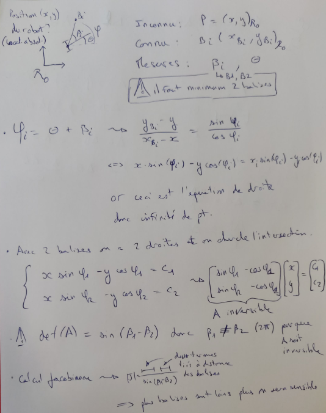 Position (x,y)
du robot?
(local abs)
Bi
φ
β
θ
R0
Inconnu: P = (x,y)R0
Connu: Bi (xBi, yBi)R0
Mesures: βi, θ
↳ B1, B2
⚠ il faut minimum 2 balises
• φi = θ + βi ⇝ (yBi - y)/(xBi - x) = sin φi / cos φi
⟺ x sin(φi) - y cos(φi) = xi sin(φi) - yi cos(φi)
or ceci est l'equation de droite
donc infinité de pt.
• Avec 2 balises on a 2 droites et on cherche l'intersection.
{ x sin φ1 - y cos φ1 = C1
{ x sin φ2 - y cos φ2 = C2
⇝ [sin φ1 -cos φ1; sin φ2 -cos φ2] [x; y] = [C1; C2]
A inversible
• ⚠ det(A) = sin(β1-β2) donc β1 ≠ β2 (2π) pour que
A soit
inversible
• Calcul jacobienne ⇝
lié à distance
des balises
sin(β1-β2)
⟹ plus balises sont loin plus on sera sensible